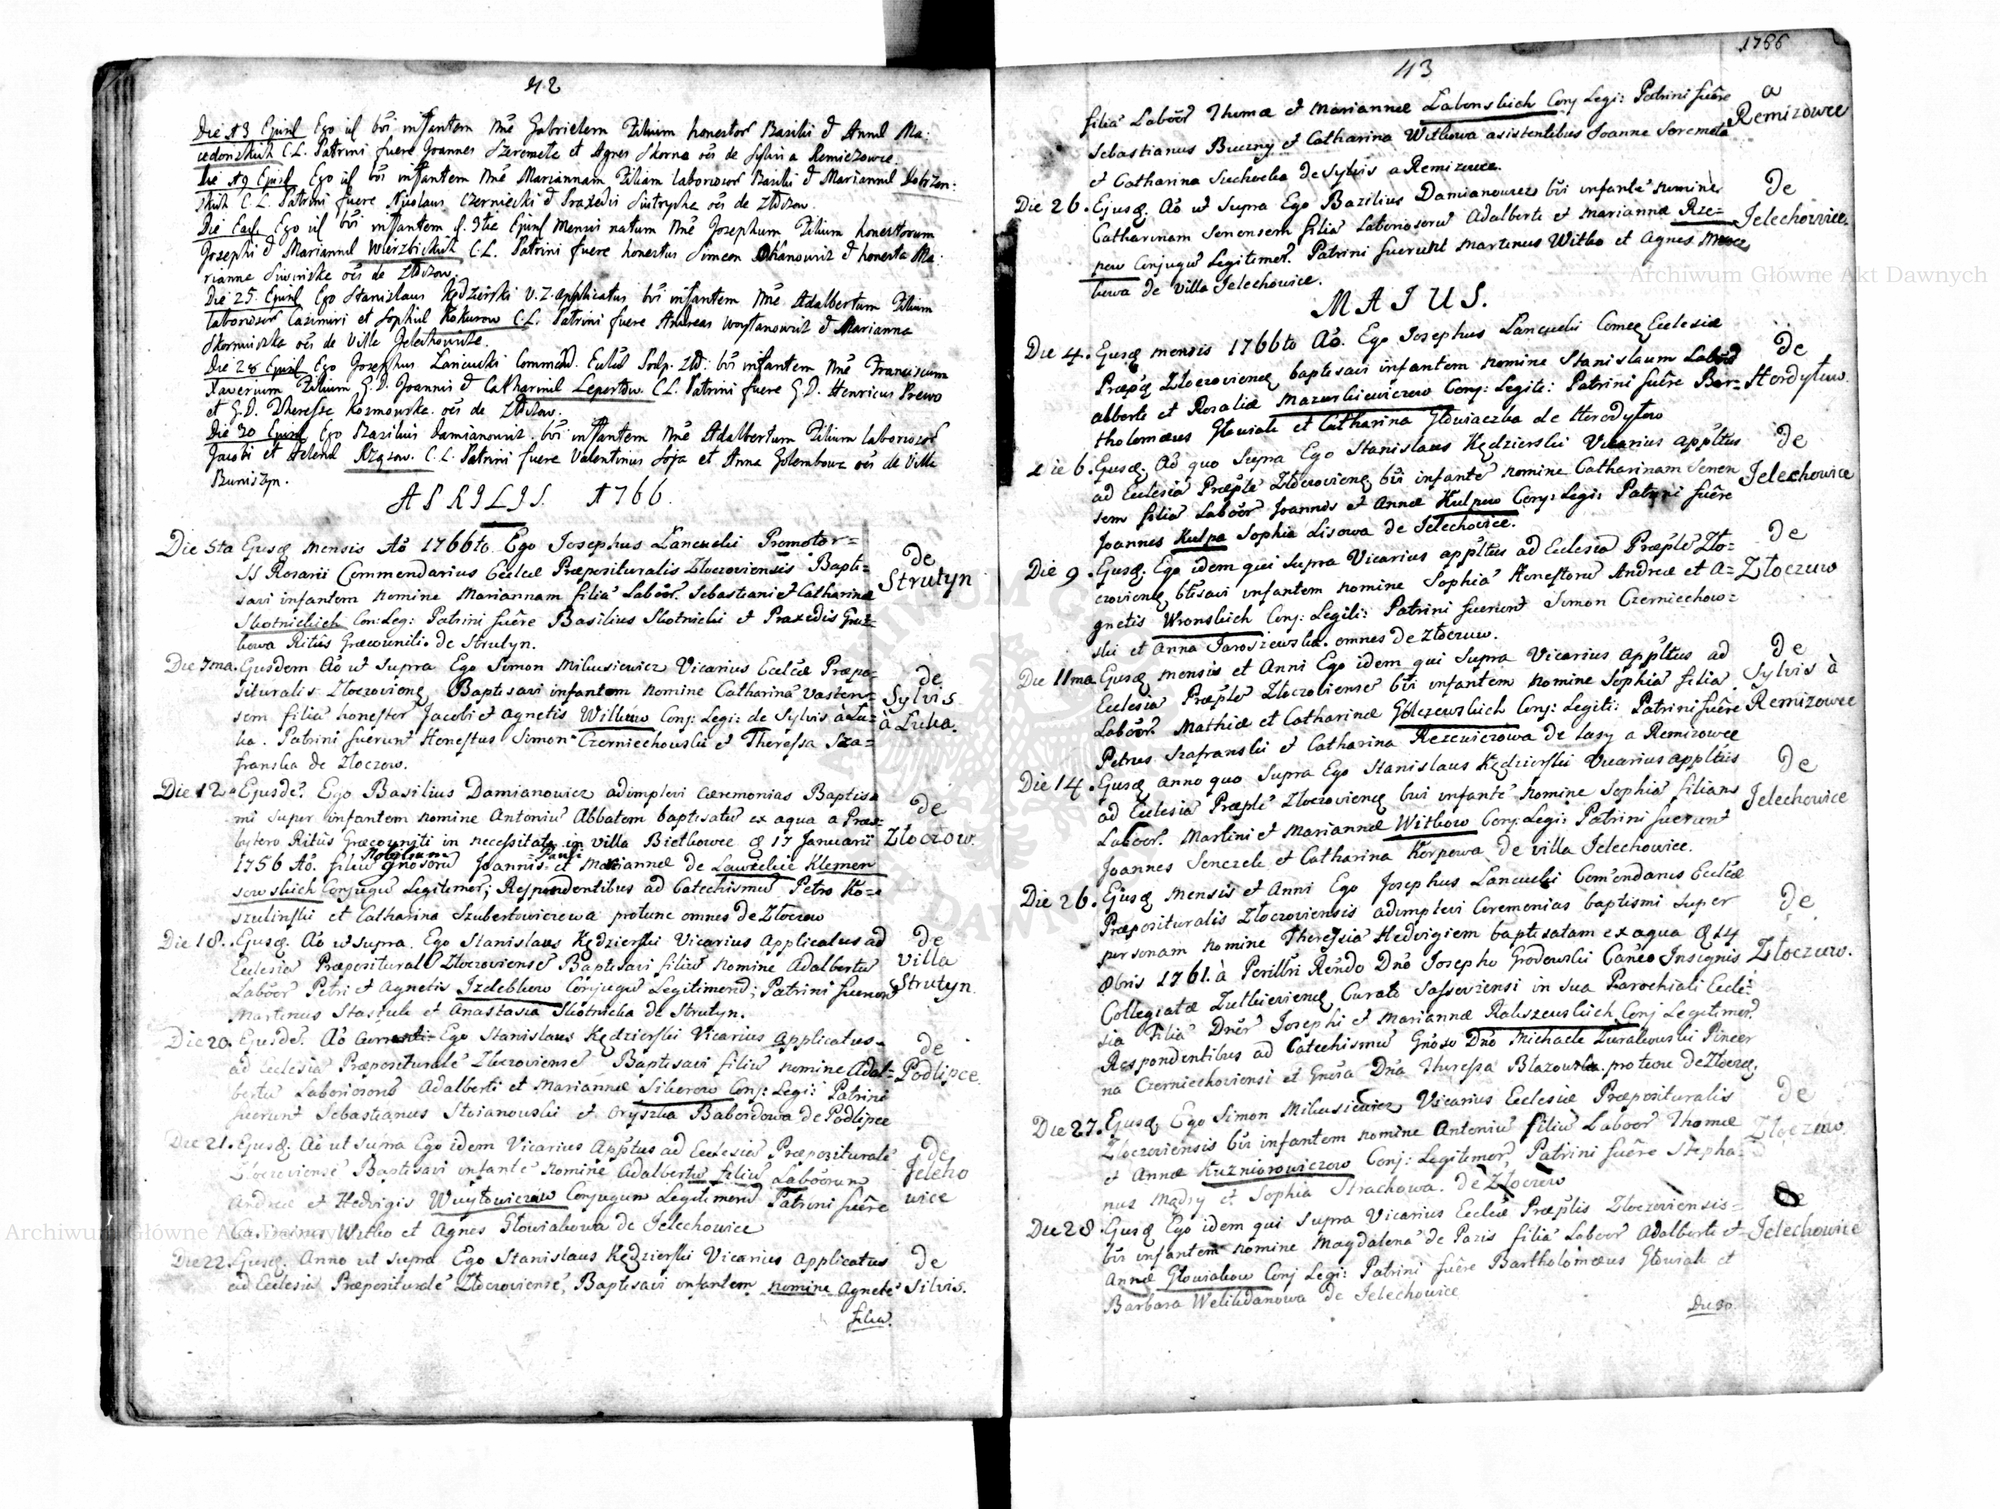 42
Die 13 Ejusd Ego ut bti infantem nne Gabrielem Filium honestor Basilii et Annæ Ma:
cedonskich C.L. Patrini fuere Joannes Szeremete et Agnes Skorna oes de Sylvi a Remiezowce.
Die 19 Ejusd Ego ut bti infantem nne Mariannam Filiam laborosor Basilii et Mariannæ
C.L. Patrini fuere Nicolaus Czerniecki et Praxedis oes de Złoczow.
Die Ego ut bti infantem Ejusd Mensis natum nne Josephum Filium honestorum
Josephi et Mariannæ Wierzbickich C.L. Patrini fuere honestus Simeon et honesta Ma:
rianna oes de Złoczow.
Die 25 Ejusd Ego Stanislaus Kędzierski V.Z. applicatus bti infantem nne Adalbertum Filium
laborosor Casimiri et Sophiæ Kokurow C.L. Patrini fuere Andreas Woytanowicz et Marianna
oes de Ville Jelechowicze.
Die 28 Ejusd Ego Josephus Lancucki Commend. Eccliæ bti infantem nne Franciscum
Xaverium Filium G.D. Joannis et Catharinæ Lepertow C.L. Patrini fuere G.D. Henricus Prewo
et G.D. Theresse Kozmowska oes de Złoczow.
Die 30 Ejusd Ego Basilius Damianowicz bti infantem nne Adalbertum Filium laborosor
Jacobi et Helenæ Rząsow. C.L. Patrini fuere Valentinus Soja et Anna Golembowa oes de Ville
Buniszyn.
APRILIS. 1766.
Die 5ta Ejusq mensis Ao 1766to. Ego Josephus Lancucki Promotor=
SS Rosarii Commendarius Eccliæ Præpositurallis Złoczoviensis Bapti=
savi infantem nomine Mariannam filia Laboor. Sebastiani et Catharinæ
Skotnickich Con: Leg: Patrini fuêre Basilius Skotnicki et Praxedis
Ritûs Græcouniti. de Strutyn.
de
Strutyn
Die 7ma. Ejusdem Ao ut Supra Ego Simon Mikusiewicz Vicarius Eccliæ Præpo=
situralis Złoczovienę Baptisavi infantem nomine Catharina
sem filia honestor Jacobi et Agnetis Wilkow Conj: Legi: de Sylvis à Lu=
ka. Patrini fuerunt Honestus Simon Czerniechowski et Theressa Sza=
franska de Złoczow.
de
Sylvis
à Luka.
Die 12a Ejusde. Ego Basilius Damianowicz adimplevi cæremonias Baptis=
mi super infantem nomine Antoniu Abbatem baptisatu ex aqua a Præs=
bytero Ritûs Græcouniti in necessitate in villa Bietkowce q 17 Januarii
1756 Ao. filiu Nobilium gnosoru Joannis Pauli et Mariannæ de Lawzekie Klemen
sowskich Conjugu Legitimor; Respondentibus ad Catechismu Petro Ko=
szulinski et Catharina Szubertowiczowa protunc omnes de Złoczow
de
Złoczow.
Die 18. Ejusq. Ao ut supra. Ego Stanislaus Kędzierski Vicarius Applicatus ad
Ecclesia Præpositurale Złoczoviense Baptisavi filiu nomine Adalbertu
Laboor Petri et Agnetis Izdebkow Conjugu Legitimoru; Patrini fuerunt
Martinus Stastule et Anastasia Skotnicka de Strutyn.
de
Villa
Strutyn.
Die 20. Ejusde. Ao currenti Ego Stanislaus Kędzierski Vicarius applicatus=
ad Ecclesia Præpositurale Złoczoviense Baptisavi filiu nomine Adal=
bertu Laboriosoru Adalberti et Mariannæ Sikorow Conj: Legi: Patrini
fuerunt Sebastianus Stoianowski et Oryszka Babordowa de Podlipce
de
Podlipce.
Die 21. Ejusq Ao ut supra Ego idem Vicarius Appltus ad Ecclesia Præpositurale
Złoczoviense Baptisavi infante nomine Adalbertu filiu Laboorum
Andreæ et Hedvigis Woytowiczow Conjugum Legitimoru Patrini fuêre
Casimirus Witko et Agnes Głowiakowa de Jelechowice
de
Jeleho
wice
Die 22. Ejusq. Anno ut supra Ego Stanislaus Kędzierski Vicarius applicatus
ad Ecclesia Præpositurale Złoczoviense, Baptisavi infantem nomine Agnete
filia.
de
Silvis.
43
1766
filia Laboor Thomæ et Mariannæ Labonskich Conj Legi: Patrini fuêre
Sebastianus Buczny et Catharina Witkowa asistentibus Joanne Soremeta
et Catharina Suchocka de Sylvis a Remizowce.
a
Remizowce
Die 26. Ejusq. Ao ut Supra Ego Bazilius Damianowicz bti infante nomine
Catharinam Senensem filia Laboriosoru Adalberti et Mariannæ Rze=
pow Conjugu Legitimor. Patrini fuerunt Martinus Witko et Agnes
kowa de Villa Jelechowice.
de
Jelechowice.
MAJUS.
Die 4. Ejusq mensis 1766to Ao. Ego Josephus Lancucki Comeę Ecclesiæ
Præpę Złoczovienę baptisavi infantem nomine Stanislaum Laboor
alberti et Rosaliæ Mazurkiewiczow Conj: Legiti: Patrini fuêre Bar=
tholomæus Głowiak et Catharina Głowiaczka de Herodytow
de
Herdytuw
Die 6. Ejusq. Ao quo Supra Ego Stanislaus Kędzierski Vicarius appltus
ad Ecclesia Præple Złoczovienę bti infante nomine Catharinam Senen
sem filia Laboor Joannis et Annæ Kulpow Conj: Legi: Patrini fuêre
Joannes Kulpa Sophia Lisowa de Jelechowice.
de
Jelechowice
Die 9. Ejusq. Ego idem qui Supra Vicarius appltus ad Ecclesia Præple Zło=
czovienę btisavi infantem nomine Sophia Honestoru Andreæ et A=
gnetis Wronskich Conj: Legiti: Patrini fuerunt Simon Czerniechow=
ski et Anna Jaroszewska. omnes de Złoczuw.
de
Złoczuw
Die 11ma Ejusq mensis et Anni Ego idem qui Supra Vicarius appltus ad
Ecclesia Præple Złoczoviense bti infantem nomine Sophia filia
Laboor. Mathiæ et Catharinæ Golczewskich Conj: Legiti: Patrini fuêre
Petrus Szafranski et Catharina Rezewiczowa de Lasy a Remizowce
de
Sylvis à
Remizowce
Die 14. Ejusq anno quo Supra Ego Stanislaus Kędzierski Vicarius appltus
ad Ecclesia Præple Złoczovienę bti infante nomine Sophia filiam
Laboor. Martini et Mariannæ Witkow Conj: Legi: Patrini fuerunt
Joannes Senczek et Catharina Korpowa de villa Jelechowice.
de
Jelechowice
Die 26. Ejusq mensis et Anni Ego Josephus Lancucki Comendarius Eccliæ
Præpositurallis Złoczoviensis adimplevi Ceremonias baptismi super
personam nomine Theressia Hedvigiem baptisatam ex aqua q 14
8bris 1761. à Perillri Rendo Dno Josepho Grodowski Caneo Insignis
Collegiatæ Zulkievienę Curato Sassoviensi in sua Parochiali Eccle:
sia filia Dner Josephi et Mariannæ Raluszewskich Conj Legitimor.
Respondentibus ad Catechismu Gnoso Dno Michaele Zuralowski Pincer
na Czerniechoviensi et Gnosa Dna Theressa Blazowska protunc de Złoczę.
de
Złoczuw.
Die 27. Ejusq. Ego Simon Mikusiewicz Vicarius Ecclesiæ Præpositurallis
Złoczoviensis bti infantem nomine Antoniu filiu Laboor Thomæ
et Annæ Kuzniorowiczow Conj: Legitimor Patrini fuêre Stepha=
nus Mądry et Sophia Strachowa. de Złoczow
de
Złoczuw.
Die 28. Ejusq Ego idem qui supra Vicarius Eccliæ Præplis Złoczoviensis=
bti infantem nomine Magdalena de Pazis filia Laboor Adalberti et
Annæ Głowiakow Conj Legi: Patrini fuêre Bartholomæus Głowiak et
Barbara Welihdanowa de Jelechowice
de
Jelechowice
Die 30.
Archiwum Główne Akt Dawnych
Archiwum Główne Akt Dawnych